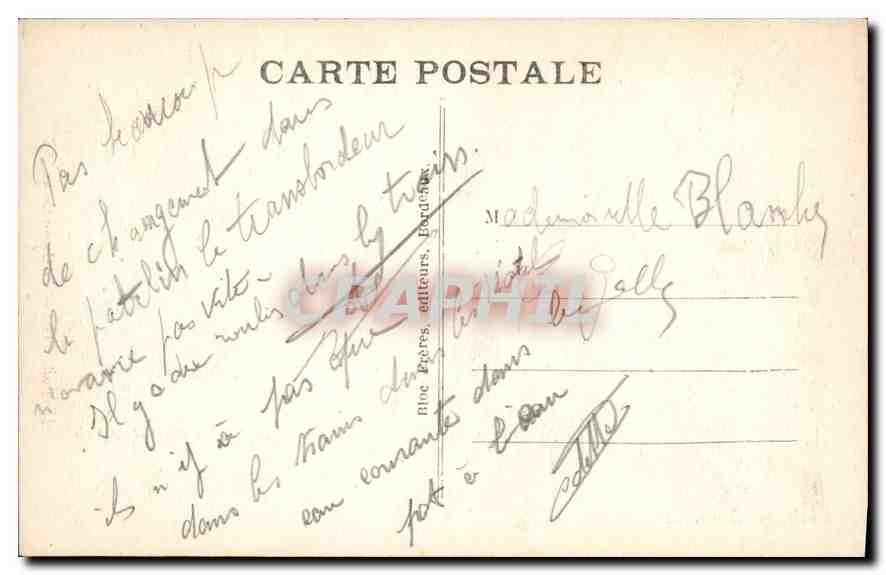 CARTE POSTALE
Pas beaucoup
de changement dans
le patelin le transbordeur
n'avance pas vite -
Il y a des roulis dans les trains.
il n'y a pas
dans les trains dans les hotel
eau courante dans les
pot à l'eau
Odette
Mademoiselle Blanche
Gelly
Bloc Frères, éditeurs, Bordeaux.
CPAPHIL